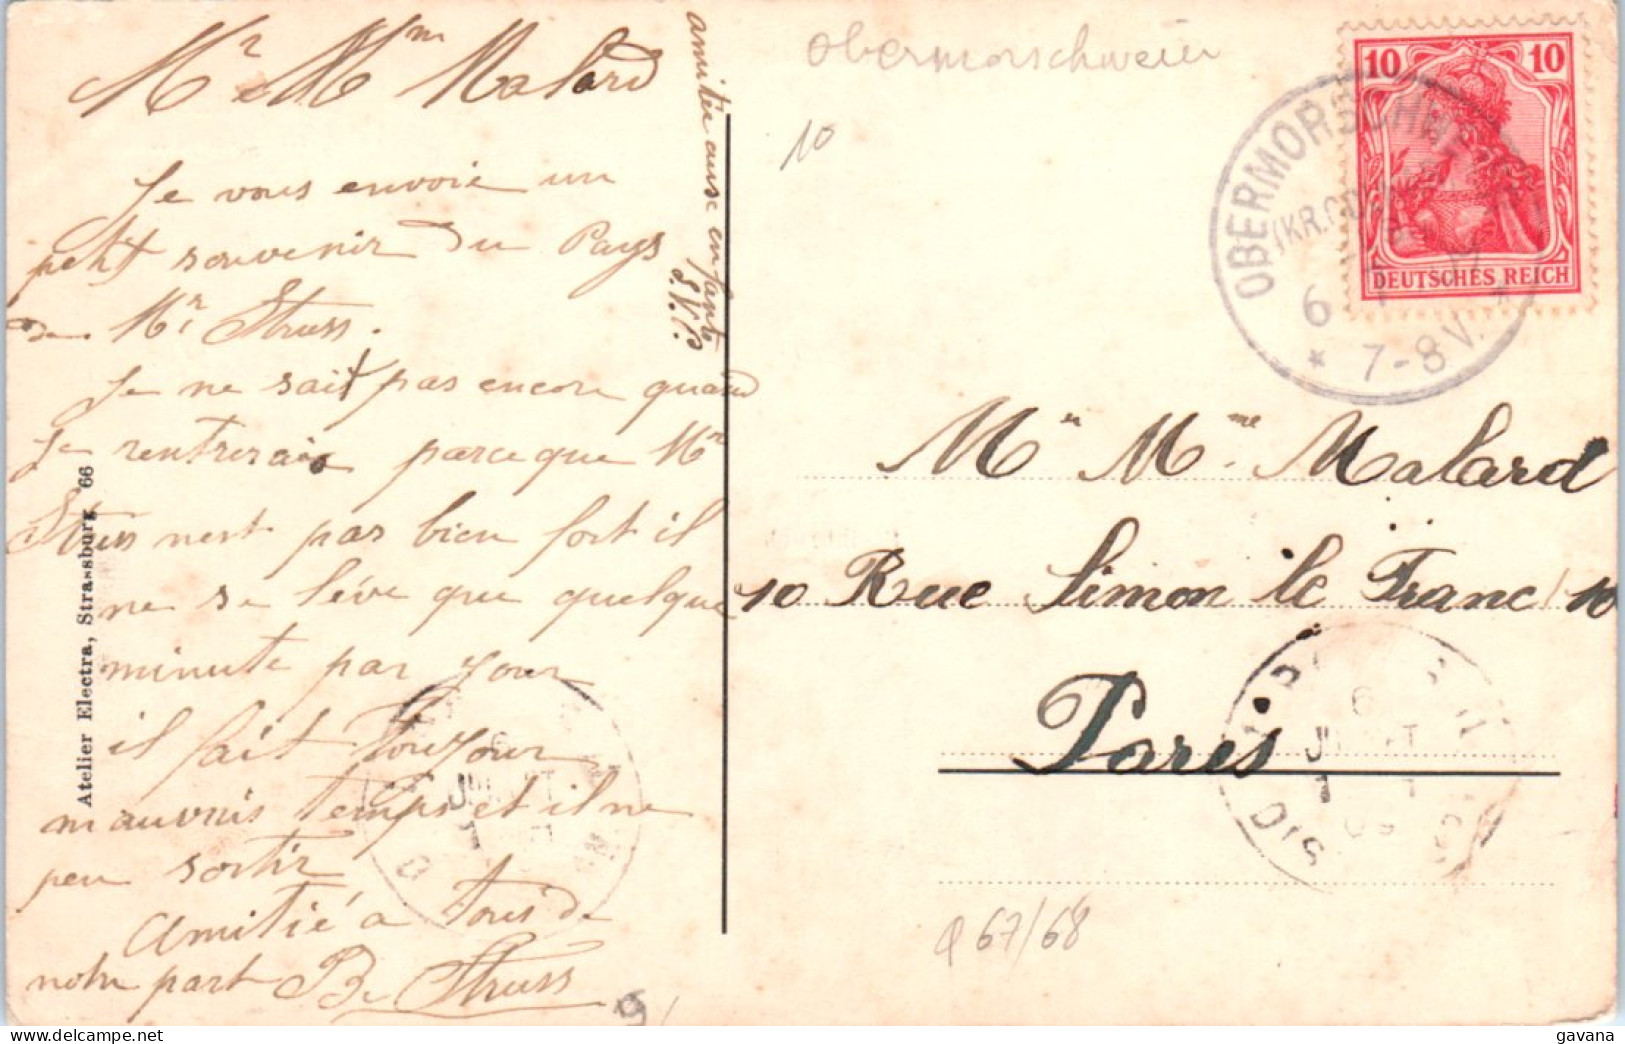 Mr e Mm Malard
Je vous envoie un
petit souvenir du Pays
de Mr Struss.
Je ne sait pas encore quand
Je rentrerais parceque Mr
Struss nest pas bien fort il
ne se léve que quelque
minute par jour
il fait toujour
mauvais temps et il ne
peu sortir
Amitié a tous de
notre part B. Struss
amitiée ausse enfants
S.V.P
Atelier Electra, Strassburg 66
Obermorschweier
10
10 10
DEUTSCHES REICH
OBERMORSCHWEIER
6
* 7-8 V. *
Mr Mme Malard
10 Rue Simon le Franc 10
Paris
6
JUILLET
09
DIS
φ 67/68
gavana